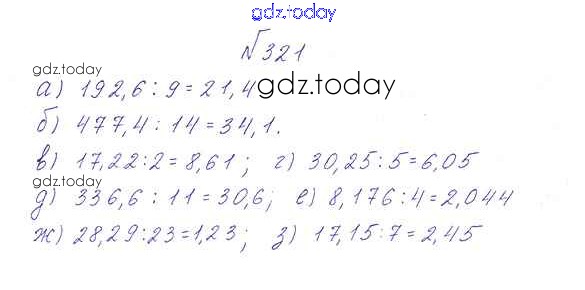 gdz.today
№321
gdz.today
а) 192,6 : 9 = 21,4 gdz.today
б) 477,4 : 14 = 34,1.
в) 17,22 : 2 = 8,61 ; г) 30,25 : 5 = 6,05
gdz.today
д) 336,6 : 11 = 30,6; е) 8,176 : 4 = 2,044
ж) 28,29 : 23 = 1,23 ; з) 17,15 : 7 = 2,45